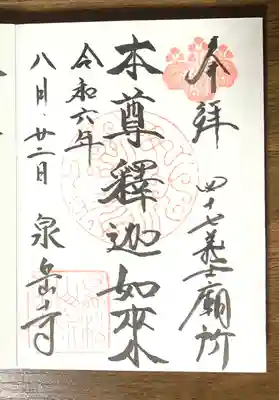 奉拝
四十七義士廟所
本尊釋迦如来
令和六年
八月廿二日
泉岳寺